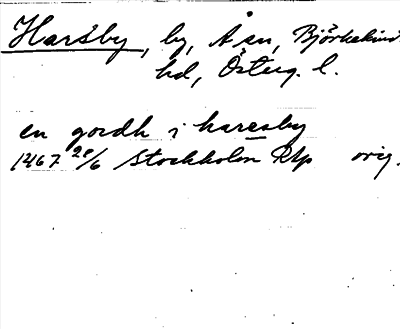 Harsby, by, Å sn, Björkekind
hd, Österg. l.
en gordh i haresby
1467 20/6 Stockholm RAp orig.